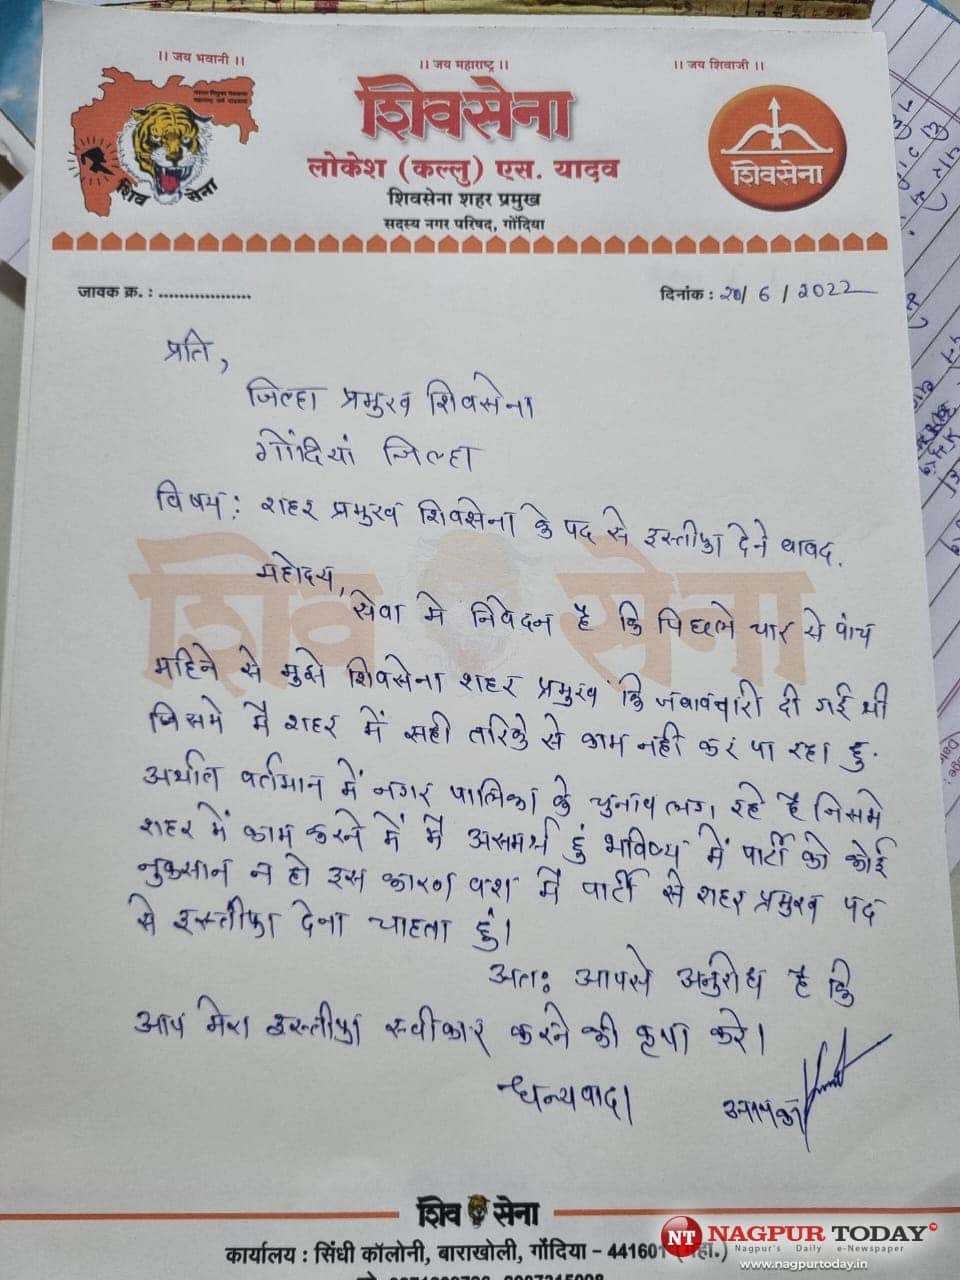 ।। जय भवानी ।।
।। जय महाराष्ट्र ।।
।। जय शिवाजी ।।
शिवसेना
लोकेश (कल्लु) एस. यादव
शिवसेना शहर प्रमुख
सदस्य नगर परिषद, गोंदिया
शिव सेना
शिवसेना
जावक क्र. : ..................
दिनांक : 20/ 6 / 2022
प्रति,
जिल्हा प्रमुख शिवसेना
गोंदियां जिल्हा
विषय: शहर प्रमुख शिवसेना के पद से इस्तीफा देने बाबद.
महोदय,
सेवा मे निवेदन है कि पिछले चार से पांच
महिने से मुझे शिवसेना शहर प्रमुख कि जवाबदारी दी गई थी
जिसमे मै शहर में सही तरिके से काम नही कर पा रहा हु.
अर्थात वर्तमान में नगर पालिका के चुनाव लग रहे है जिसमे
शहर में काम करने में मै असमर्थ हुं भविष्य में पार्टी को कोई
नुकसान न हो इस कारण वश मै पार्टी से शहर प्रमुख पद
से इस्तीफा देना चाहता हुं।
अतः आपसे अनुरोध है कि
आप मेरा इस्तीफा स्वीकार करने की कृपा करे।
धन्यवाद।
आपका
शिव सेना
शिव सेना
कार्यालय : सिंधी कॉलोनी, बाराखोली, गोंदिया - 441601 (महा.)
NT NAGPUR TODAY
Nagpur's Daily e-Newspaper
www.nagpurtoday.in